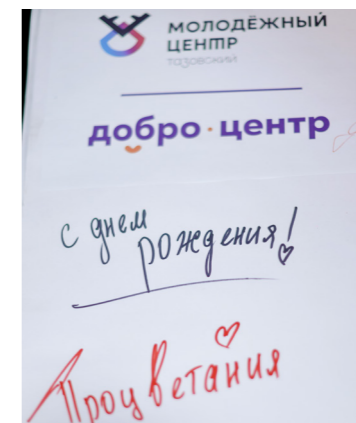 МОЛОДЁЖНЫЙ
ЦЕНТР
ТАЗОВСКИЙ
добро·центр
С днем
рождения!
Процветания